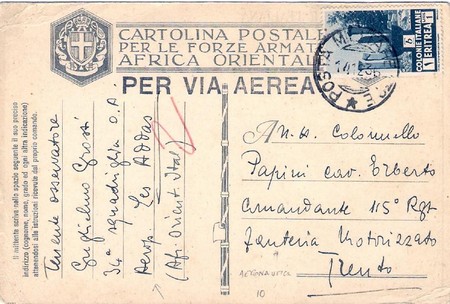 CARTOLINA POSTALE
PER LE FORZE ARMATE
AFRICA ORIENTALE
PER VIA AEREA
COLONIE ITALIANE
ERITREA
1
POSTA
Il mittente scriva nello spazio seguente il suo preciso
indirizzo (cognome, nome, grado ed ogni altra indicazione)
attenendosi alle istruzioni ricevute dal proprio comando.
Tenente osservatore
Guglielmo Grossi
34a squadriglia O.A
Aerop. Les Addas
(Afr. Orient. Ital)
A
n. Colonnello
Papini cav. Erberto
Comandante 115° Rgt
fanteria Motorizzato
Trento
AERONAUTICA
10